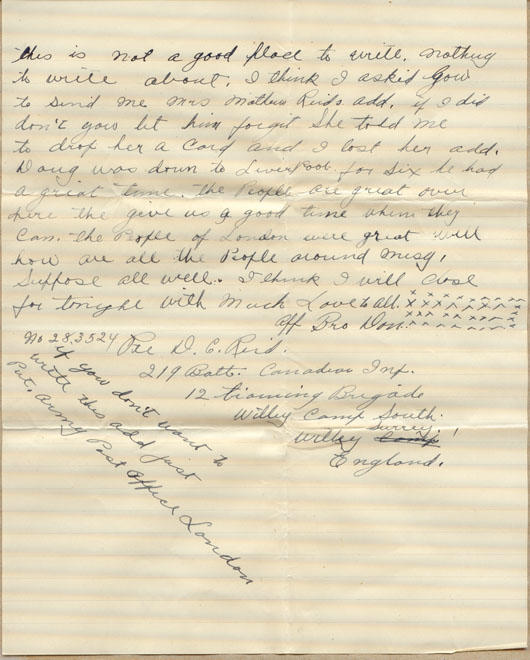 this is not a good place to write. nothing
to write about. I think I asked you
to send me Mrs Mathew Reids add. if I did
don't you let him forgit She told me
to drop her a Card and I lost her add.
Doug was down to Liverpool for six he had
a great time. the People are great over
here the give us a good time when they
Can. the People of London were great Well
how are all the People around
Suppose all well. I think I will Close
for tonight with Much Love to all. x x x x x x x x
Aff Bro Don. x x x x x x x
No 283524 Pte D. C. Reid.
219 Batt. Canadian Inf.
12 traning Brigade
Witley Camp South.
Witley Camp Surrey.
England.
if you don't want to
write this add just
Put. Army Post Office London